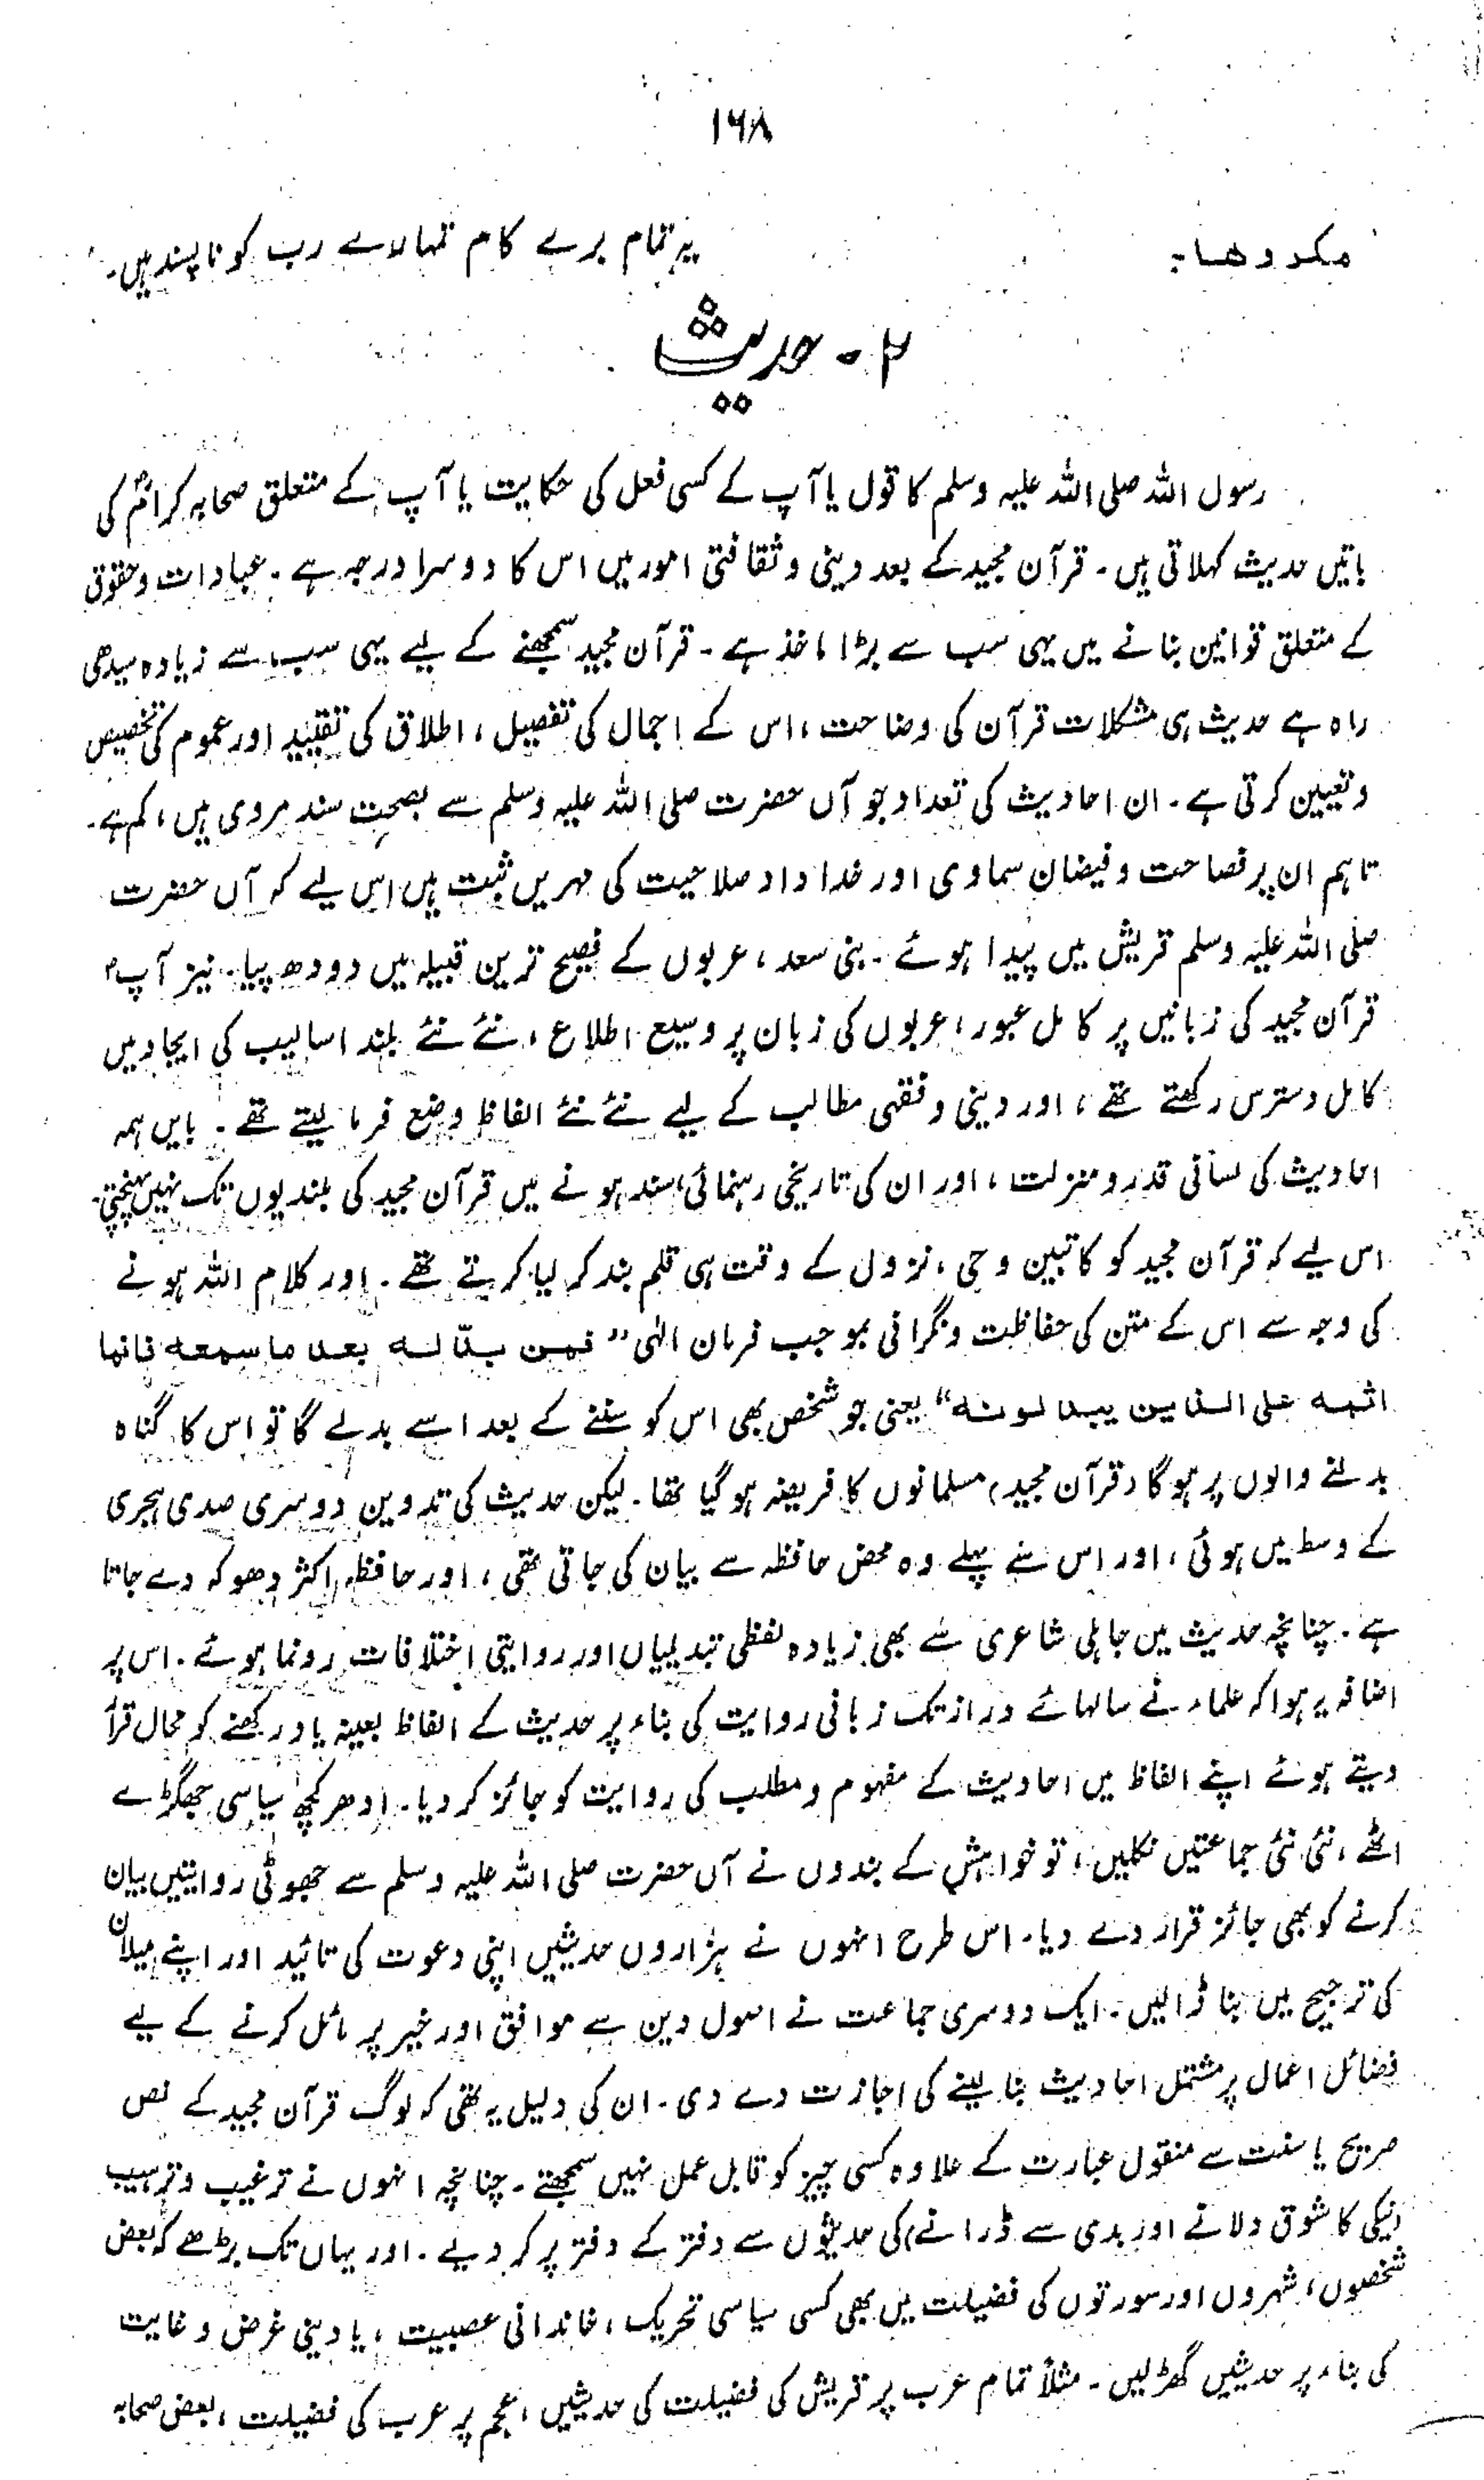 ۱۶۸
مکروھا۔ یہ تمام برے کام تمہارے رب کو ناپسند ہیں۔
۲ - حدیث
رسول اللہ صلی اللہ علیہ وسلم کا قول یا آپ کے کسی فعل کی حکایت یا آپ کے متعلق صحابہ کرامؓ کی
باتیں حدیث کہلاتی ہیں۔ قرآن مجید کے بعد دینی وثقافتی امور میں اس کا دوسرا درجہ ہے۔ عبادات وحقوق
کے متعلق قوانین بنانے میں یہی سب سے بڑا ماخذ ہے۔ قرآن مجید سمجھنے کے لیے یہی سب سے زیادہ سیدھی
راہ ہے حدیث ہی مشکلات قرآن کی وضاحت، اس کے اجمال کی تفصیل، اطلاق کی تقیید اور عموم کی تخصیص
وتعیین کرتی ہے۔ ان احادیث کی تعداد جو آں حضرت صلی اللہ علیہ وسلم سے بصحت سند مروی ہیں، کم ہے۔
تاہم ان پر فصاحت وفیضان سماوی اور خداداد صلاحیت کی مہریں ثبت ہیں اس لیے کہ آں حضرت
صلی اللہ علیہ وسلم قریش میں پیدا ہوئے۔ بنی سعد، عربوں کے فصیح ترین قبیلہ میں دودھ پیا۔ نیز آپؐ
قرآن مجید کی زبانیں پر کامل عبور، عربوں کی زبان پر وسیع اطلاع، نئے نئے بلند اسالیب کی ایجاد میں
کامل دسترس رکھتے تھے، اور دینی وفقہی مطالب کے لیے نئے نئے الفاظ وضع فرما لیتے تھے۔ بایں ہمہ
احادیث کی لسانی قدر و منزلت، اور ان کی تاریخی رہنمائی، سند ہونے میں قرآن مجید کی بلندیوں تک نہیں پہنچتی۔
اس لیے کہ قرآن مجید کو کاتبین وحی، نزول کے وقت ہی قلم بند کر لیا کرتے تھے۔ اور کلام اللہ ہونے
کی وجہ سے اس کے متن کی حفاظت ونگرانی بموجب فرمان الٰہی ”فمن بدّلـه بعد ما سمعه فانما
اثمه علی الذین یبدلونه“ یعنی جو شخص بھی اس کو سننے کے بعد اسے بدلے گا تو اس کا گناہ
بدلنے والوں پر ہوگا (قرآن مجید) مسلمانوں کا فریضہ ہو گیا تھا۔ لیکن حدیث کی تدوین دوسری صدی ہجری
کے وسط میں ہوئی، اور اس سے پہلے وہ محض حافظہ سے بیان کی جاتی تھی، اور حافظہ اکثر دھوکہ دے جاتا
ہے۔ چنانچہ حدیث میں جاہلی شاعری سے بھی زیادہ لفظی تبدیلیاں اور روایتی اختلافات رونما ہوئے۔ اس پر
اضافہ یہ ہوا کہ علماء نے سالہائے دراز تک زبانی روایت کی بناء پر حدیث کے الفاظ بعینہ یاد رکھنے کو محال قرار
دیتے ہوئے اپنے الفاظ میں احادیث کے مفہوم ومطلب کی روایت کو جائز کر دیا۔ ادھر کچھ سیاسی جھگڑے
اٹھے، نئی نئی جماعتیں نکلیں، تو خواہش کے بندوں نے آں حضرت صلی اللہ علیہ وسلم سے جھوٹی روایتیں بیان
کرنے کو بھی جائز قرار دے دیا۔ اس طرح انہوں نے ہزاروں حدیثیں اپنی دعوت کی تائید اور اپنے میلان
کی ترجیح میں بنا ڈالیں۔ ایک دوسری جماعت نے اصول دین سے موافق اور خیر پر مائل کرنے کے لیے
فضائل اعمال پر مشتمل احادیث بنا لینے کی اجازت دے دی۔ ان کی دلیل یہ تھی کہ لوگ قرآن مجید کے نص
صریح یا سنت سے منقول عبارت کے علاوہ کسی چیز کو قابل عمل نہیں سمجھتے۔ چنانچہ انہوں نے ترغیب وترہیب
(نیکی کا شوق دلانے اور بدی سے ڈرانے) کی حدیثوں سے دفتر کے دفتر پر کر دیے۔ اور یہاں تک بڑھے کہ بعض
شخصوں، شہروں اور سورتوں کی فضیلت میں بھی کسی سیاسی تحریک، خاندانی عصبیت، یا دینی غرض وغایت
کی بناء پر حدیثیں گھڑ لیں۔ مثلاً تمام عرب پر قریش کی فضیلت کی حدیثیں، عجم پر عرب کی فضیلت، بعض صحابہ